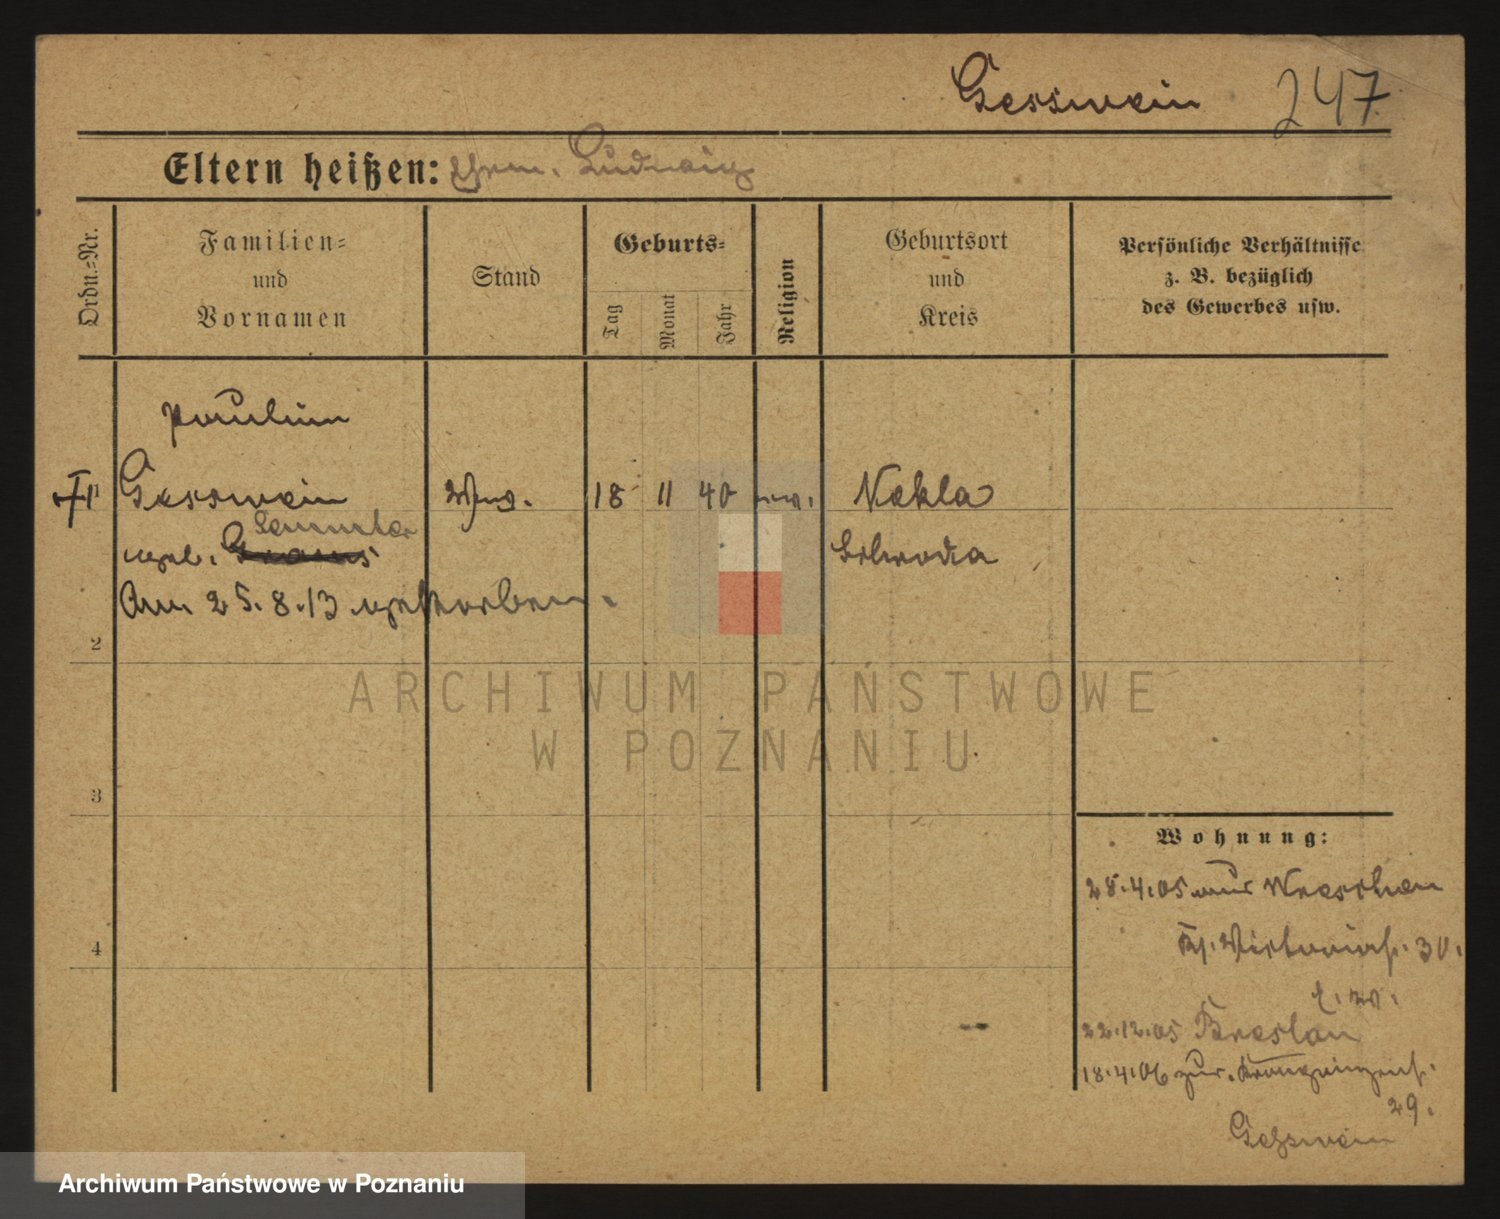 Gesswein 247
Eltern heißen: Ehem. Ludwig
Ordn.-Nr.
Familien-
und
Vornamen
Stand
Geburts-
Tag
Monat
Jahr
Religion
Geburtsort
und
Kreis
Persönliche Verhältnisse
z. B. bezüglich
des Gewerbes usw.
Pauline
1 Gesswein Wwe. 18 11 40 ev. Nekla
geb. Grams Schroda
Am 25.8.13 gestorben.
2
ARCHIWUM PAŃSTWOWE
W POZNANIU
3
Wohnung:
28.4.05 aus Wreschen
4
Viktoriastr. 30.
22.12.05 Breslau
18.4.06 zur. Kronprinzenstr.
29.
Gesswein
Archiwum Państwowe w Poznaniu